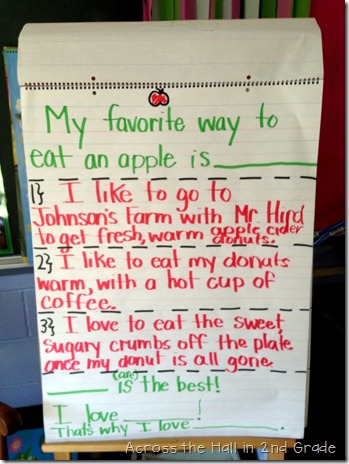 My favorite way to
eat an apple is________
1} I like to go to
Johnson's Farm with Mr. Hird
to get fresh, warm apple cider
donuts.
2} I like to eat my donuts
warm, with a hot cup of
coffee.
3} I love to eat the sweet
sugary crumbs off the plate
once my donut is all gone.
(are)
______ is the best!
I love________!
That's why I love________.
Across the Hall in 2nd Grade